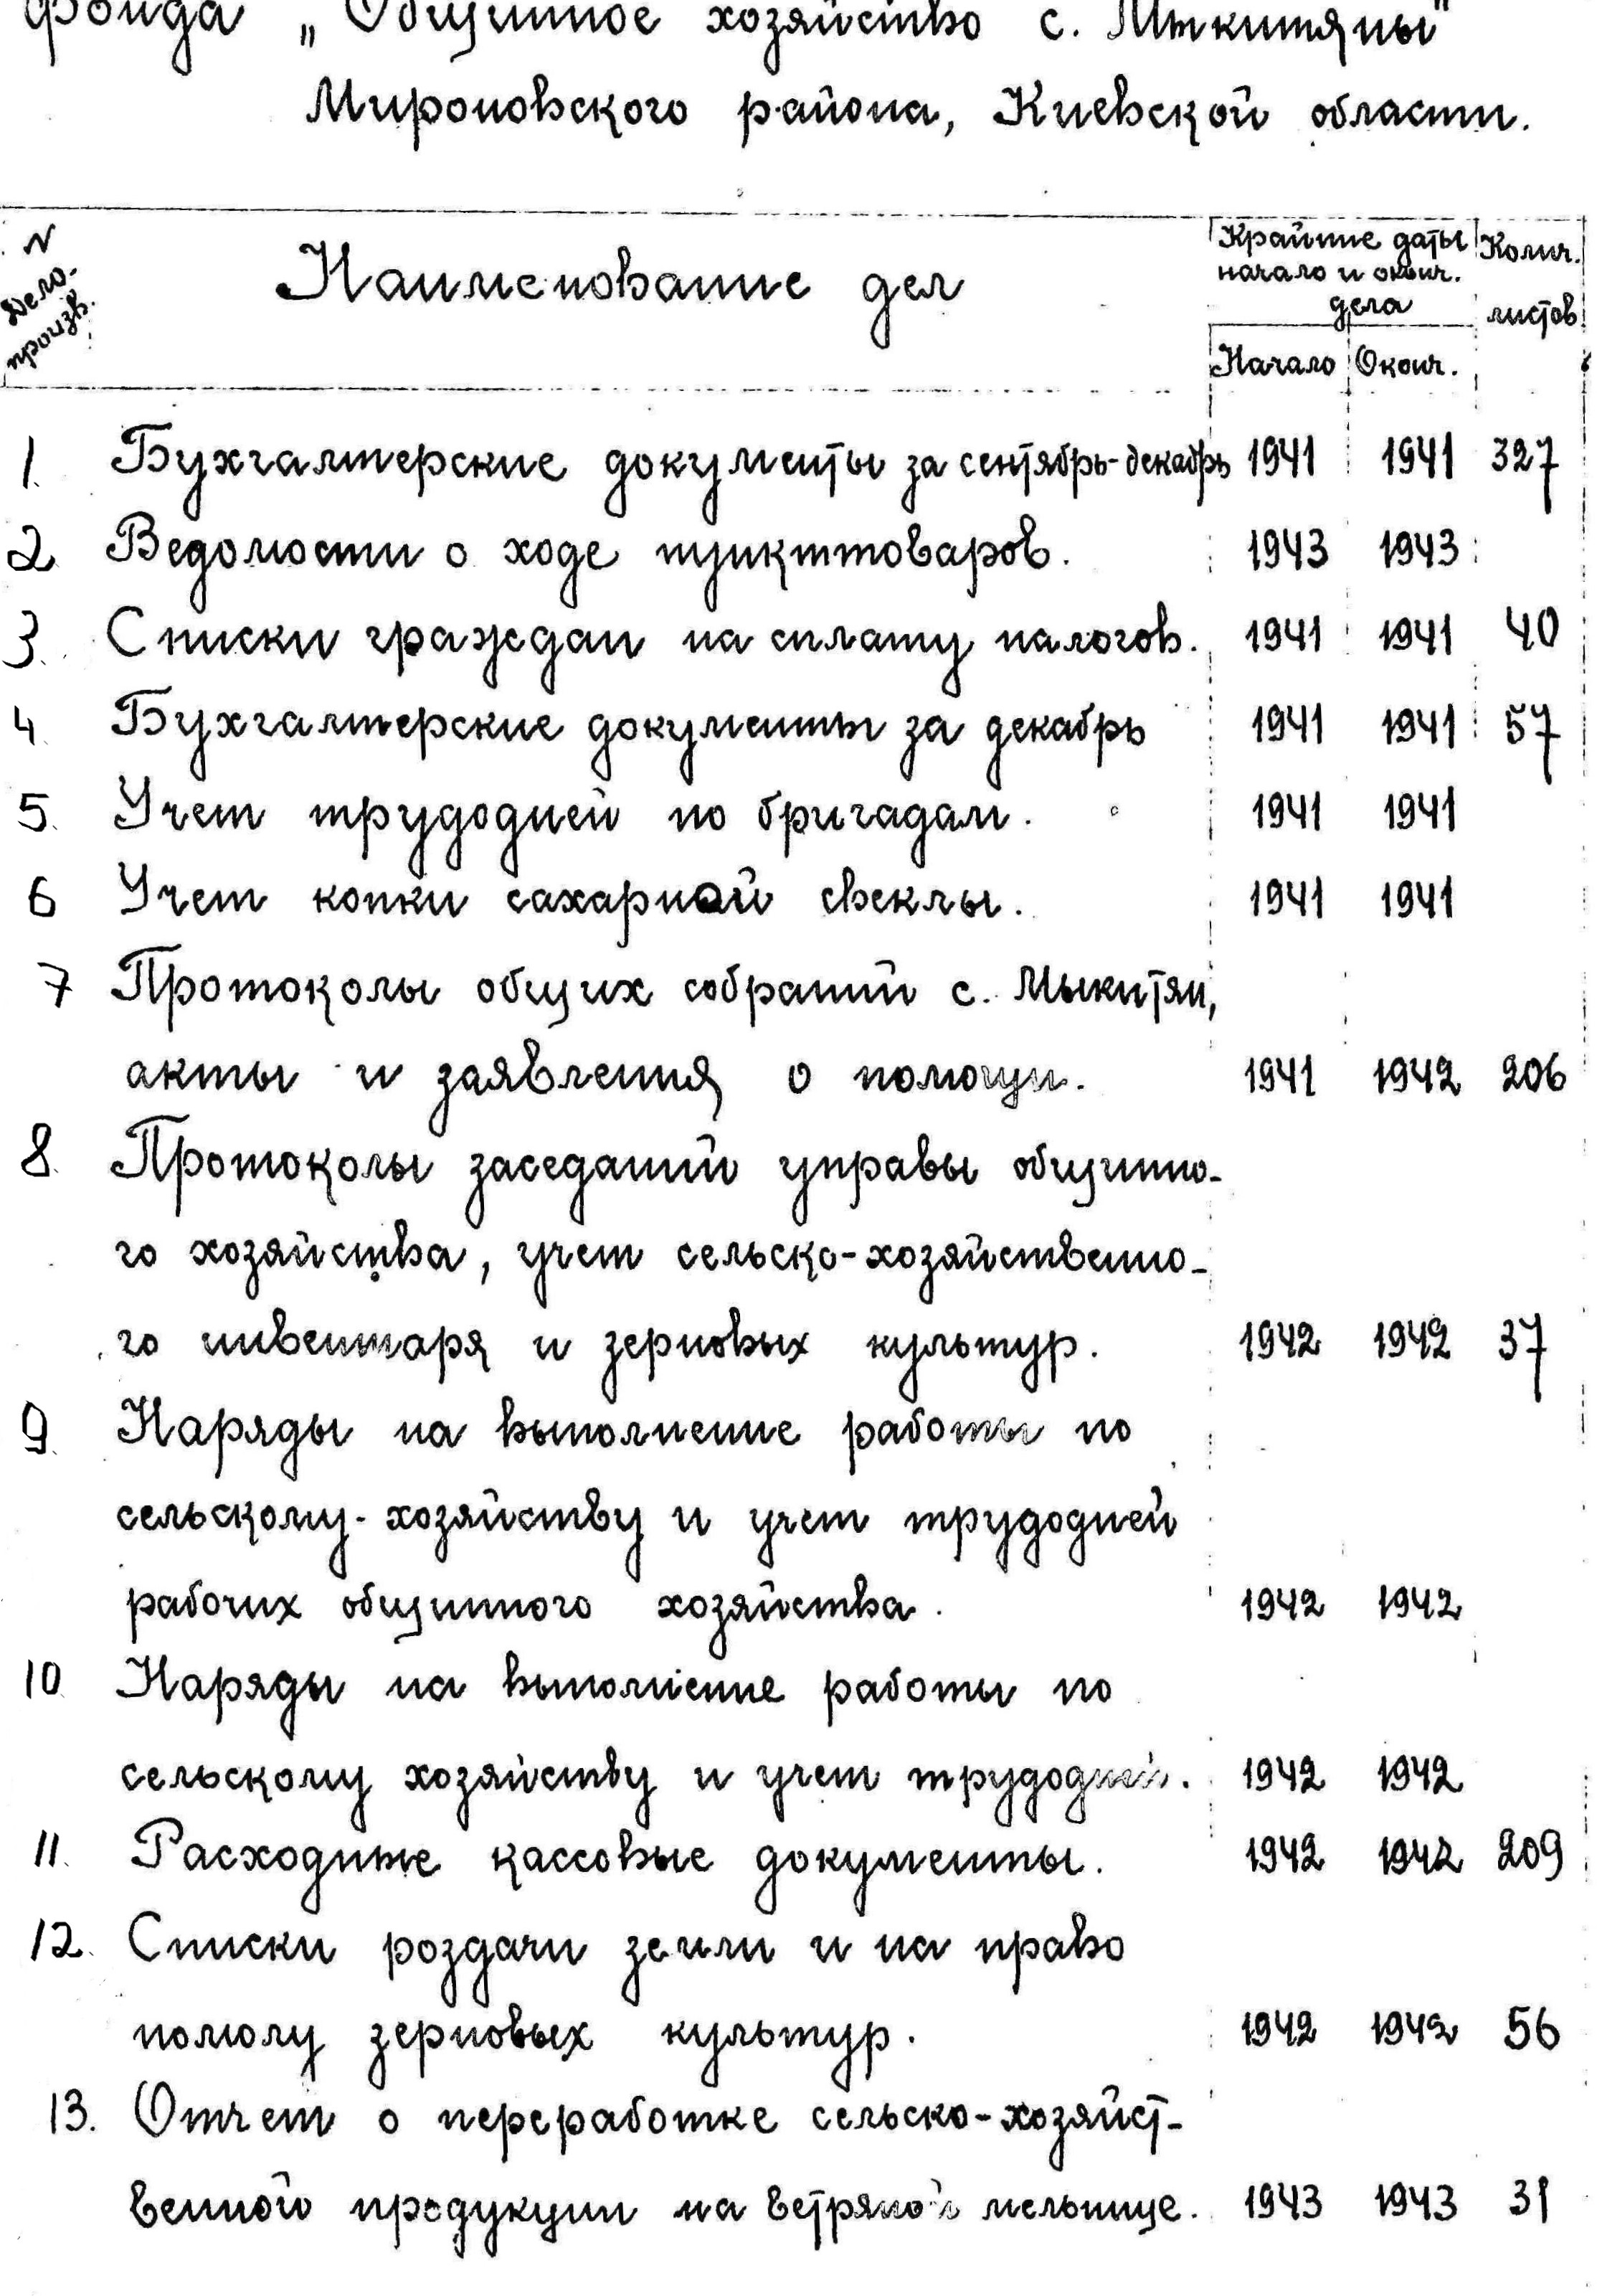 фонда „Общинное хозяйство с. Мыкитяны"
Мироновского района, Киевской области.
N Дело-произв. Наименование дел Крайние даты начало и оконч. дела Колич. листов
Начало Оконч.
1. Бухгалтерские документы за сентябрь-декабрь 1941 1941 327
2. Ведомости о ходе пунктоваров. 1943 1943
3. Списки граждан на сплату налогов. 1941 1941 40
4. Бухгалтерские документы за декабрь 1941 1941 57
5. Учет трудодней по бригадам. 1941 1941
6 Учет копки сахарной свеклы. 1941 1941
7 Протоколы общих собраний с. Мыкитян,
акты и заявления о помощи. 1941 1942 206
8. Протоколы заседаний управы общинно-
го хозяйства, учет сельско-хозяйственно-
го инвентаря и зерновых культур. 1942 1942 37
9. Наряды на выполнение работы по
сельскому-хозяйству и учет трудодней
рабочих общинного хозяйства. 1942 1942
10 Наряды на выполнение работы по
сельскому хозяйству и учет трудодней. 1942 1942
11. Расходные кассовые документы. 1942 1942 209
12. Списки роздачи земли и на право
помолу зерновых культур. 1942 1942 56
13. Отчет о переработке сельско-хозяйст-
венной продукции на ветряной мельнице. 1943 1943 31